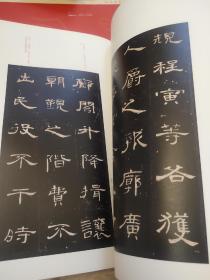 規程寅等各獲
人爵之報廓廣
廊閣升降揖讓
朝覲之階費不
出民役不干時